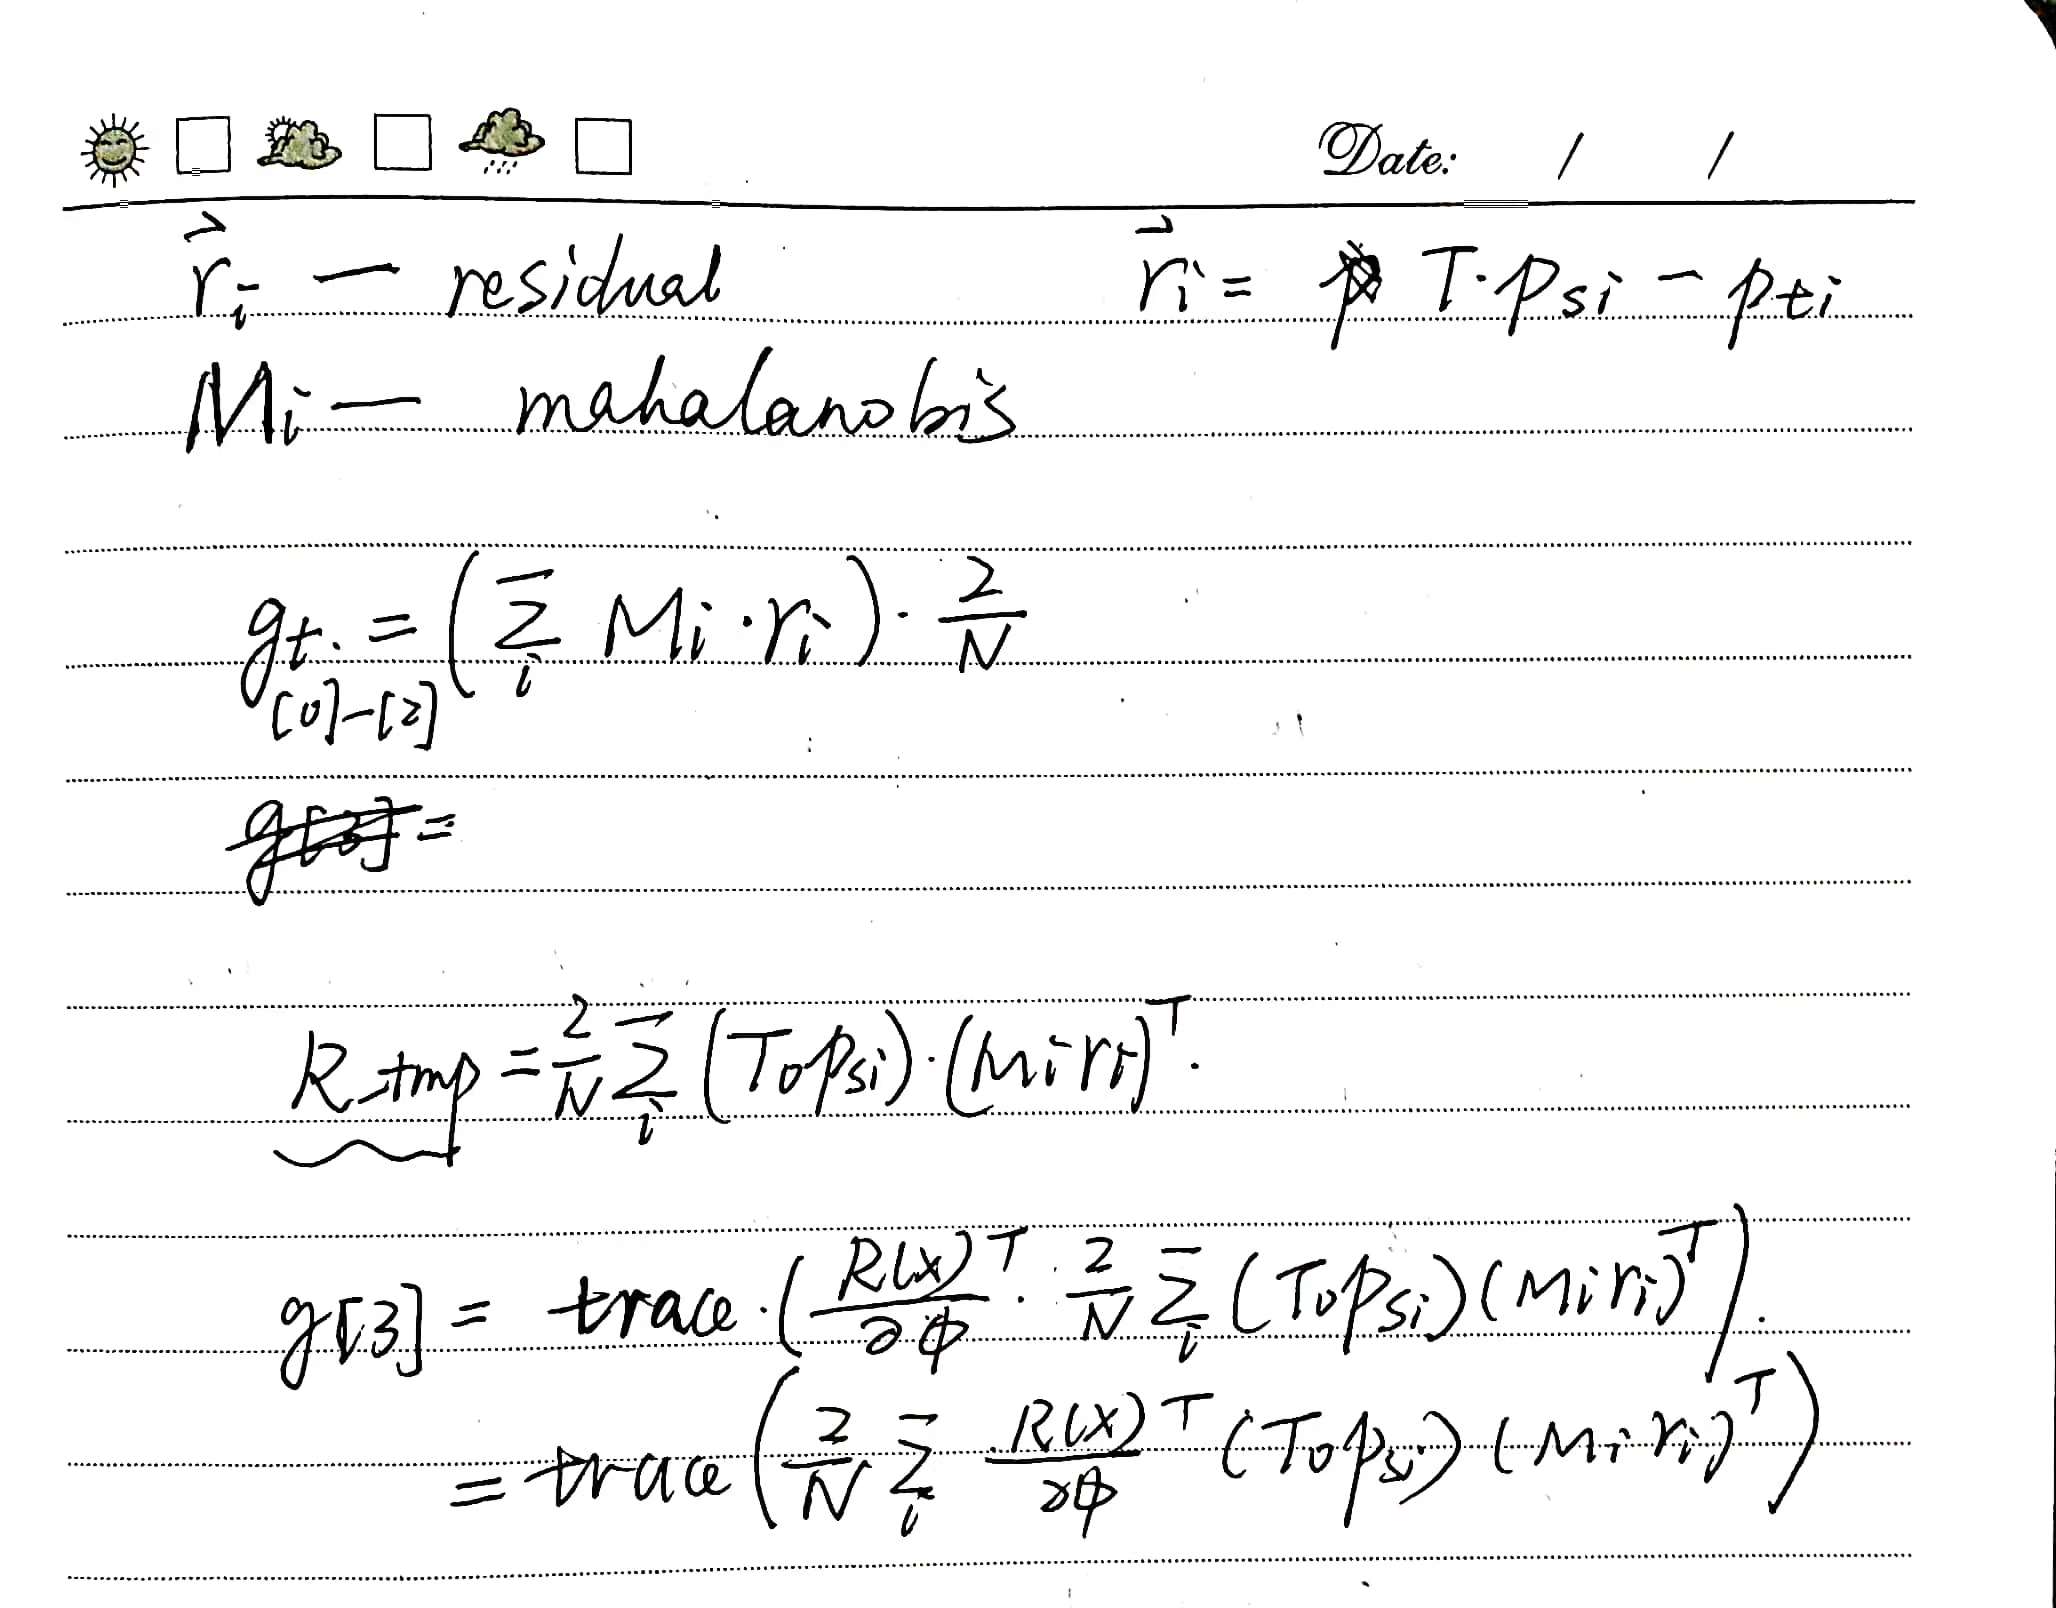 Date: / /
r⃗ᵢ — residual r⃗ᵢ = T·pₛᵢ − pₜᵢ
Mᵢ — mahalanobis
gₜ. = (∑ᵢ Mᵢ·rᵢ)·2/N
[0]-[2]
g[3] =
R_tmp = 2/N ∑ᵢ (T₀pₛᵢ)·(Mᵢrᵢ)ᵀ.
g[3] = trace·(R(x)ᵀ/∂ϕ · 2/N ∑ᵢ (T₀pₛᵢ)(Mᵢrᵢ)ᵀ).
= trace(2/N ∑ᵢ R(x)ᵀ/∂ϕ (T₀pₛᵢ)(Mᵢrᵢ)ᵀ)